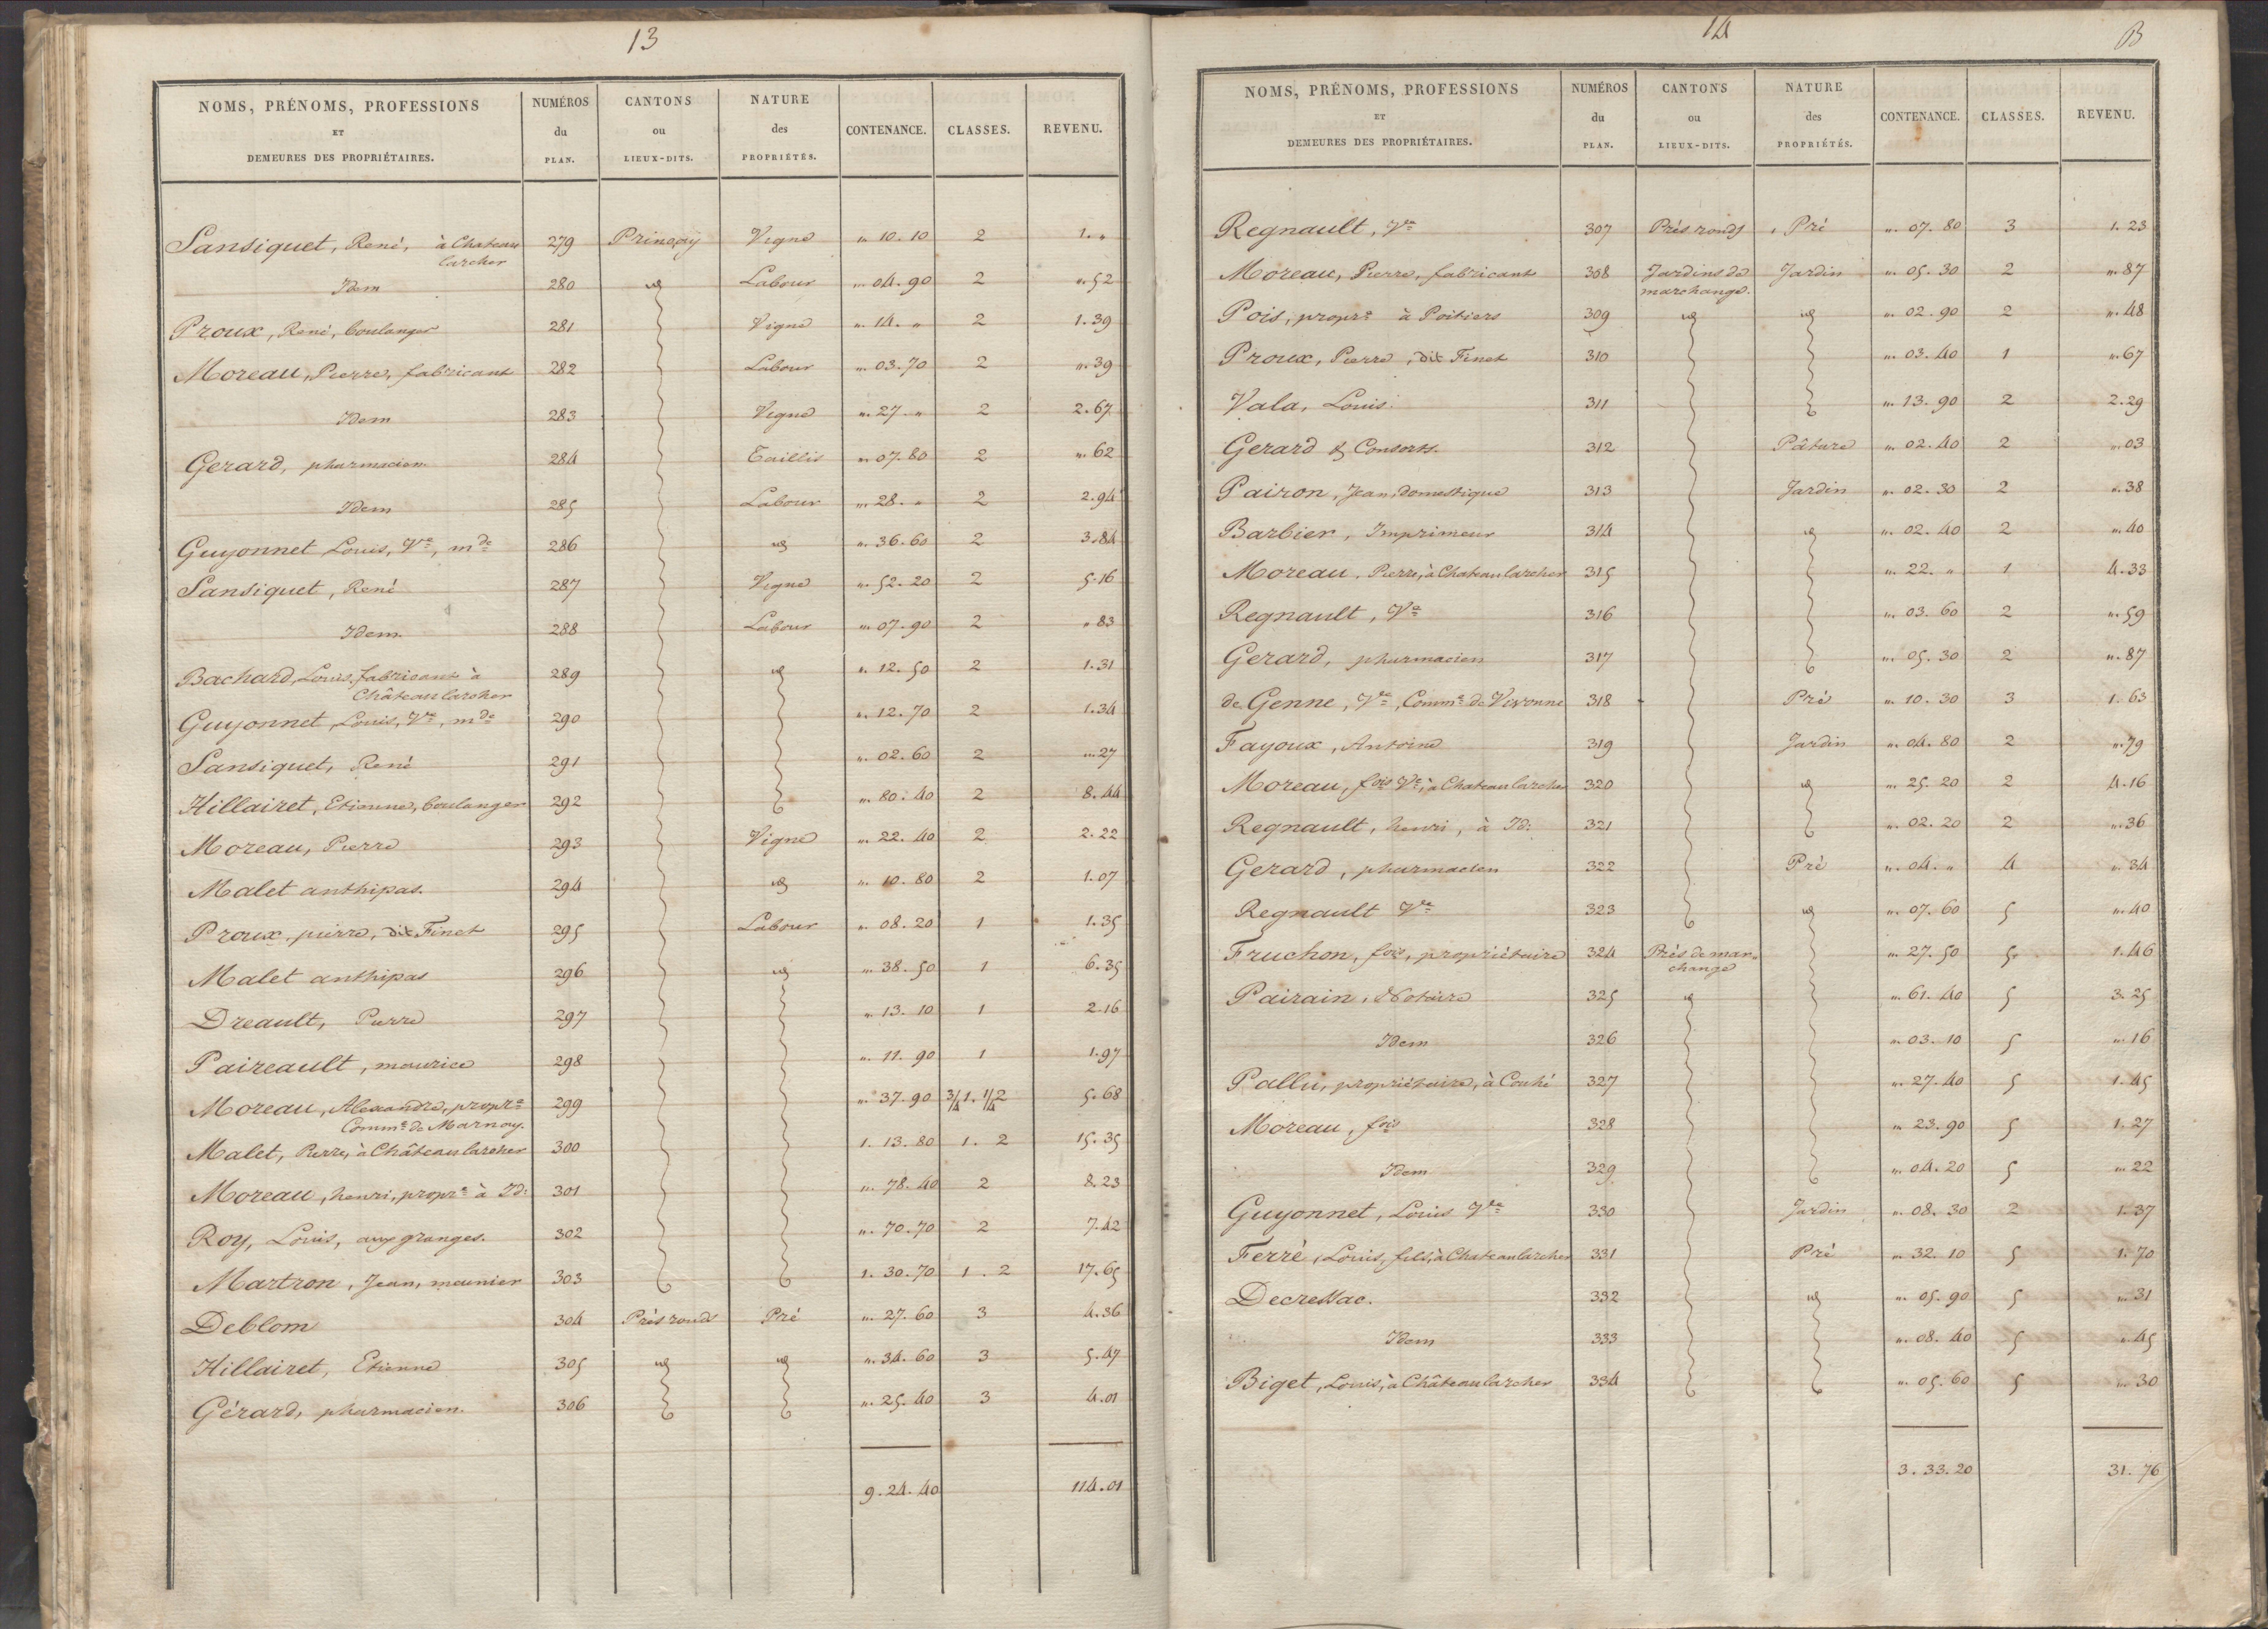 13
NOMS, PRÉNOMS, PROFESSIONS ET DEMEURES DES PROPRIÉTAIRES. NUMÉROS du PLAN. CANTONS ou LIEUX-DITS. NATURE des PROPRIÉTÉS. CONTENANCE. CLASSES. REVENU.
Sansiquet, René, à Chateau larcher 279 Prinçay Vigne " 10. 10 2 1. "
Idem 280 id Labour " 04. 90 2 ". 52
Proux, René, boulanger 281 Vigne " 14. " 2 1. 39
Moreau, Pierre, fabricant 282 Labour " 03. 70 2 ". 39
Idem 283 Vigne " 27. " 2 2. 67
Gerard, pharmacien 284 Taillis " 07. 80 2 ". 62
Idem 285 Labour " 28. " 2 2. 94
Guyonnet Louis, Ve, mde 286 id " 36. 60 2 3. 84
Sansiquet, René 287 Vigne " 52. 20 2 5. 16
Idem. 288 Labour " 07. 90 2 " 83
Bachard, Louis, fabricant à Châteaularcher 289 id " 12. 50 2 1. 31
Guyonnet, Louis, Ve, mde 290 " 12. 70 2 1. 34
Sansiquet, René 291 " 02. 60 2 ". 27
Hillairet, Etienne, boulanger 292 " 80. 40 2 8. 44
Moreau, Pierre 293 Vigne " 22. 40 2 2. 22
Malet anthipas. 294 id " 10. 80 2 1. 07
Proux, pierre, dit Finet 295 Labour " 08. 20 1 1. 35
Malet anthipas 296 id " 38. 50 1 6. 35
Dreault, Pierre 297 " 13. 10 1 2. 16
Paireault, maurice 298 " 11. 90 1 1. 97
Moreau, Alexandre, propre Comme de Marnay. 299 " 37. 90 3/4 1. 1/4 2 5. 68
Malet, Pierre, à Châteaularcher 300 1. 13. 80 1. 2 15. 35
Moreau, henri, propre à Id: 301 " 78. 40 2 8. 23
Roy, Louis, aux granges. 302 " 70. 70 2 7. 42
Martron, Jean, meunier 303 1. 30. 70 1. 2 17. 65
Deblom 304 Prés ronds Pré " 27. 60 3 4. 36
Hillairet, Etienne 305 id id " 34. 60 3 5. 47
Gérard, pharmacien. 306 " 25. 40 3 4. 01
9. 24. 40 114. 01
14
B
NOMS, PRÉNOMS, PROFESSIONS ET DEMEURES DES PROPRIÉTAIRES. NUMÉROS du PLAN. CANTONS ou LIEUX-DITS. NATURE des PROPRIÉTÉS. CONTENANCE. CLASSES. REVENU.
Regnault, Ve 307 Prés ronds Pré " 07. 80 3 1. 23
Moreau, Pierre, fabricant 308 Jardins de marchange. Jardin " 05. 30 2 ". 87
Pois, propre à Poitiers 309 id id " 02. 90 2 ". 48
Proux, Pierre, dit Finet 310 " 03. 40 1 ". 67
Vala, Louis. 311 " 13. 90 2 2. 29
Gerard & Consorts. 312 Pâture " 02. 40 2 " 03
Pairon, Jean, domestique 313 Jardin " 02. 30 2 ". 38
Barbier, Imprimeur 314 id " 02. 40 2 ". 40
Moreau, Pierre, à Chateaularcher 315 " 22. " 1 4. 33
Regnault, Ve 316 " 03. 60 2 ". 59
Gerard, pharmacien 317 " 05. 30 2 ". 87
de Genne, Ve, Comme de Vivonne 318 Pré " 10. 30 3 1. 63
Fayoux, Antoine 319 Jardin " 04. 80 2 ". 79
Moreau, fois Ve, à Chateaularcher 320 id " 25. 20 2 4. 16
Regnault, henri, à Id: 321 " 02. 20 2 ". 36
Gerard, pharmacien 322 Pré " 04. " 4 ". 34
Regnault Ve 323 id " 07. 60 5 ". 40
Fruchon, fois, propriétaire 324 Prés de marchange " 27. 50 5 1. 46
Pairain, Notaire 325 id " 61. 40 5 3. 25
Idem 326 " 03. 10 5 ". 16
Pallu, propriétaire, à Couhé 327 " 27. 40 5 1. 45
Moreau, fois 328 " 23. 90 5 1. 27
Idem 329 " 04. 20 5 " 22
Guyonnet, Louis Ve 330 Jardin " 08. 30 2 1. 37
Ferré, Louis, fils, à Chateaularcher 331 Pré " 32. 10 5 1. 70
Decressac. 332 id " 05. 90 5 " 31
Idem 333 " 08. 40 5 ". 45
Biget, Louis, à Châteaularcher 334 " 05. 60 5 " 30
3. 33. 20 31. 76